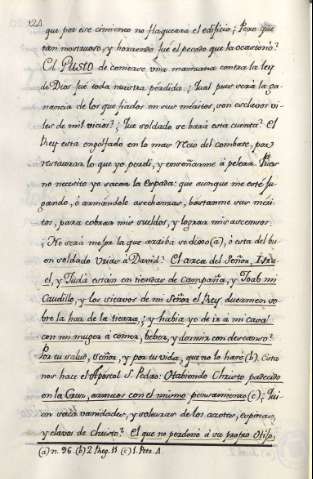 124
que por ese cimiento no flaqueara el edificio; Pero que
tan monstruoso, y horrendo fue el pecado que la ocasionó?
El Gusto de comerse una manzana contra la ley
de Dios fue toda nuestra perdida. ¿Qual pues será la ga-
nancia de los que fiados en sus méritos, son esclavos vi-
les de mil vicios? ¿Que soldado se hará esta cuenta? El
Rey esta engolfado en lo mas del combate, por
restaurar lo que yo perdi, y enseñarme á pelear. Pues
no necesito yo sacar la Espada: que aunque me esté ju-
gando, ó armandole asechanzas, bastanme sus meri-
tos, para cobrar mis sueldos, y lograr mis ascensos.
¿No será mejor la que arriba se dixo (a), ó esta del bu-
en soldado Urias á David? El arca del Señor, Isra-
el, y Judá están en tiendas de campaña, y Joab mi
Caudillo, y los siervos de mi Señor el Rey duermen so-
bre la haz de la tierra; ¿y habia yo de ir á mi casa
con mi muger á comer, beber, y dormir con descanso?
Por tu salud, Señor, y por tu vida, que no lo haré (b). Esta
nos hace el Apostol S. Pedro: Habiendo Christo padecido
en la Carne, armaos con el mismo pensamiento (c); ¿Qui-
en vanidades, y solturas de los azotes, espinas,
y clavos de Christo? El que no perdonó á su propio Hijo,
(a) n. 96. (b) 2 Reg. 11 (c) 1. Petr. 4.